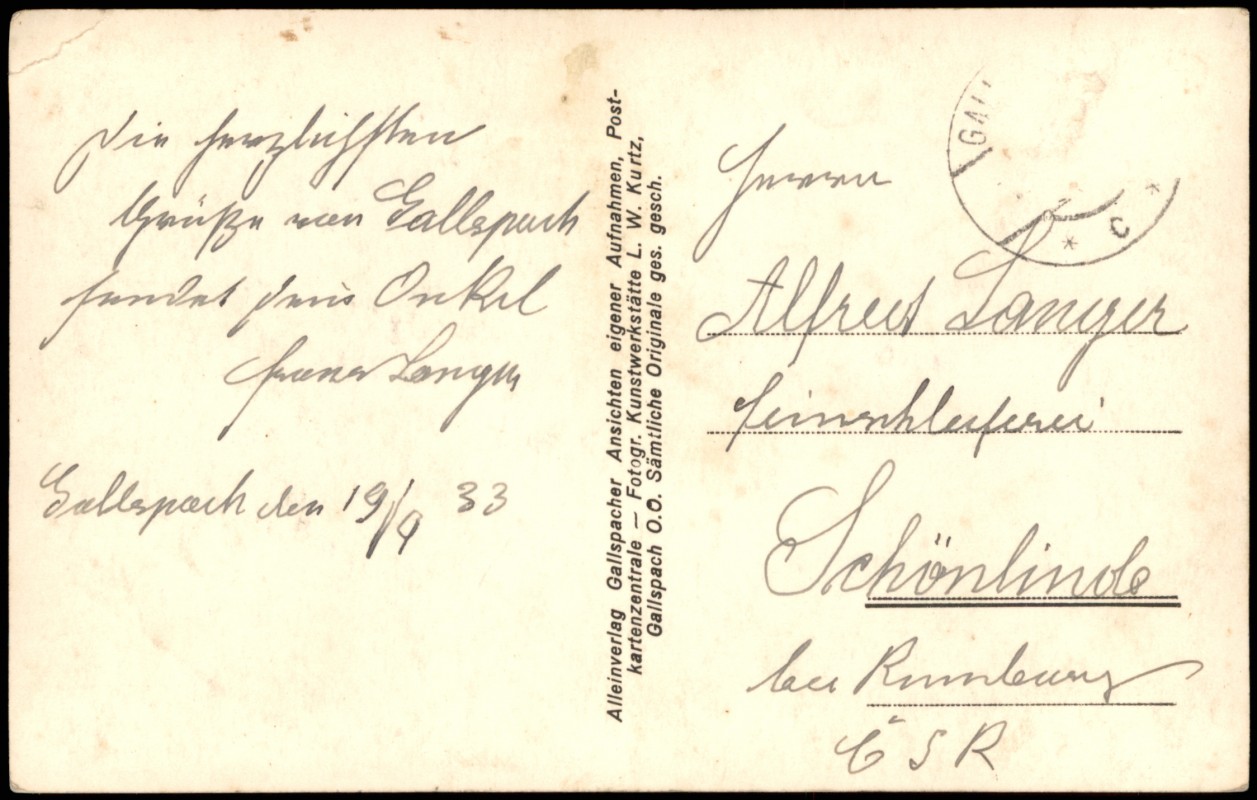 Die herzlichsten
Grüße von Gallspach
sendet Dein Onkel
Franz Langer
Gallspach den 19/9 33
Alleinverlag Gallspacher Ansichten eigener Aufnahmen, Post-
kartenzentrale — Fotogr. Kunstwerkstätte L. W. Kurtz,
Gallspach O.O. Sämtliche Originale ges. gesch.
GAL
* C *
Herrn
Alfred Langer
Feinschleiferei
Schönlinde
bei Rumburg
ČSR